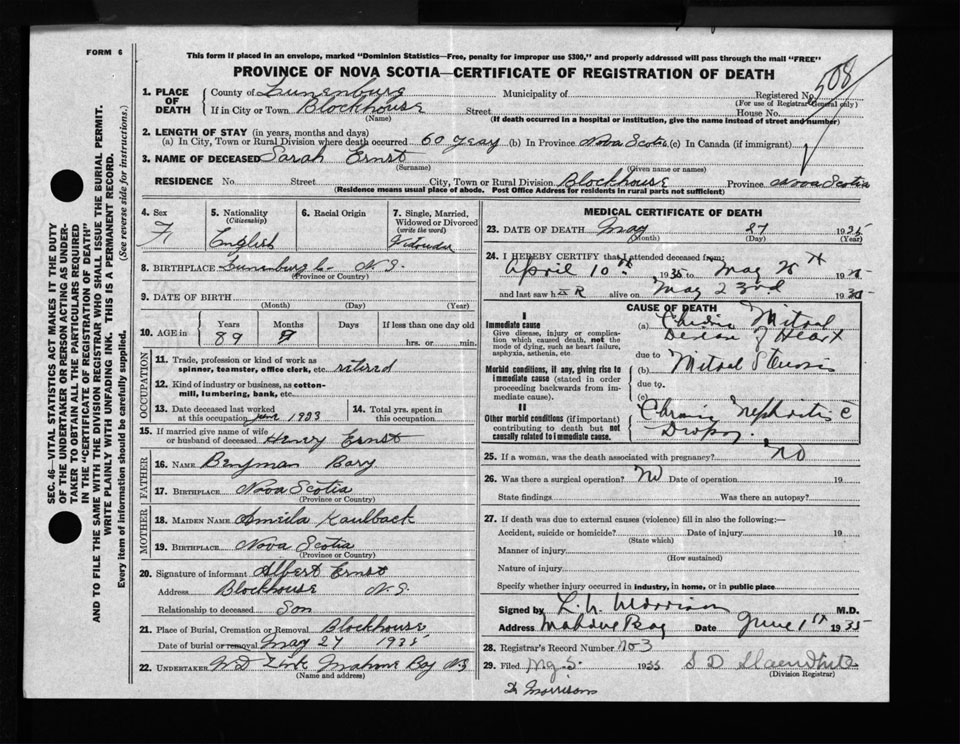 FORM 6
This form if placed in an envelope, marked "Dominion Statistics—Free, penalty for improper use $300," and properly addressed will pass through the mail "FREE"
PROVINCE OF NOVA SCOTIA—CERTIFICATE OF REGISTRATION OF DEATH
508
1. PLACE OF DEATH
County of Lunenburg Municipality of Registered No.
(For use of Registrar General only)
If in City or Town Blockhouse Street House No.
(Name) (If death occurred in a hospital or institution, give the name instead of street and number)
2. LENGTH OF STAY (in years, months and days)
(a) In City, Town or Rural Division where death occurred 60 Year (b) In Province Nova Scotia (c) In Canada (if immigrant)
3. NAME OF DECEASED Sarah Ernst
(Surname) (Given name or names)
RESIDENCE No. Street City, Town or Rural Division Blockhouse Province Nova Scotia
(Residence means usual place of abode. Post Office Address for residents in rural parts not sufficient)
4. Sex F
5. Nationality (Citizenship) English
6. Racial Origin
7. Single, Married, Widowed or Divorced (write the word)
8. BIRTHPLACE Lunenburg Co. N.S.
(Province or Country)
9. DATE OF BIRTH
(Month) (Day) (Year)
10. AGE in
Years Months Days If less than one day old
89 hrs. or min.
OCCUPATION
11. Trade, profession or kind of work as spinner, teamster, office clerk, etc. retired
12. Kind of industry or business, as cotton-mill, lumbering, bank, etc.
13. Date deceased last worked at this occupation 1933
14. Total yrs. spent in this occupation
15. If married give name of wife or husband of deceased Henry Ernst
FATHER
16. NAME Benjman
17. BIRTHPLACE Nova Scotia
(Province or Country)
MOTHER
18. MAIDEN NAME Kaulback
19. BIRTHPLACE Nova Scotia
(Province or Country)
20. Signature of informant Albert Ernst
Address Blockhouse N.S.
Relationship to deceased Son
21. Place of Burial, Cremation or Removal Blockhouse
Date of burial or removal May 27 1935
22. UNDERTAKER Mahone Bay NS
(Name and address)
MEDICAL CERTIFICATE OF DEATH
23. DATE OF DEATH May 27 1935
(Month) (Day) (Year)
24. I HEREBY CERTIFY that I attended deceased from:
April 10th 1935 to May
and last saw h er alive on May 23rd 1935
CAUSE OF DEATH
I
Immediate cause
Give disease, injury or complication which caused death, not the mode of dying, such as heart failure, asphyxia, asthenia, etc.
(a) Mitral
of Heart
due to
Morbid conditions, if any, giving rise to immediate cause (stated in order proceeding backwards from immediate cause).
(b) Mitral Stenosis
due to
(c)
II
Other morbid conditions (if important) contributing to death but not causally related to immediate cause.
Chronic Nephritis c
Dropsy
25. If a woman, was the death associated with pregnancy? No
26. Was there a surgical operation? No Date of operation 19
State findings Was there an autopsy?
27. If death was due to external causes (violence) fill in also the following:—
Accident, suicide or homicide? Date of injury 19
(State which)
Manner of injury
(How sustained)
Nature of injury
Specify whether injury occurred in industry, in home, or in public place
Signed by Morrison M.D.
Address Mahone Bay Date June 1st 1935
28. Registrar's Record Number
29. Filed 1935
(Division Registrar)
Morrisons
SEC. 46—VITAL STATISTICS ACT MAKES IT THE DUTY OF THE UNDERTAKER OR PERSON ACTING AS UNDERTAKER TO OBTAIN ALL THE PARTICULARS REQUIRED IN THE "CERTIFICATE OF REGISTRATION OF DEATH"
AND TO FILE THE SAME WITH THE DIVISION REGISTRAR WHO SHALL ISSUE THE BURIAL PERMIT.
WRITE PLAINLY WITH UNFADING INK. THIS IS A PERMANENT RECORD.
Every item of information should be carefully supplied. (See reverse side for instructions.)